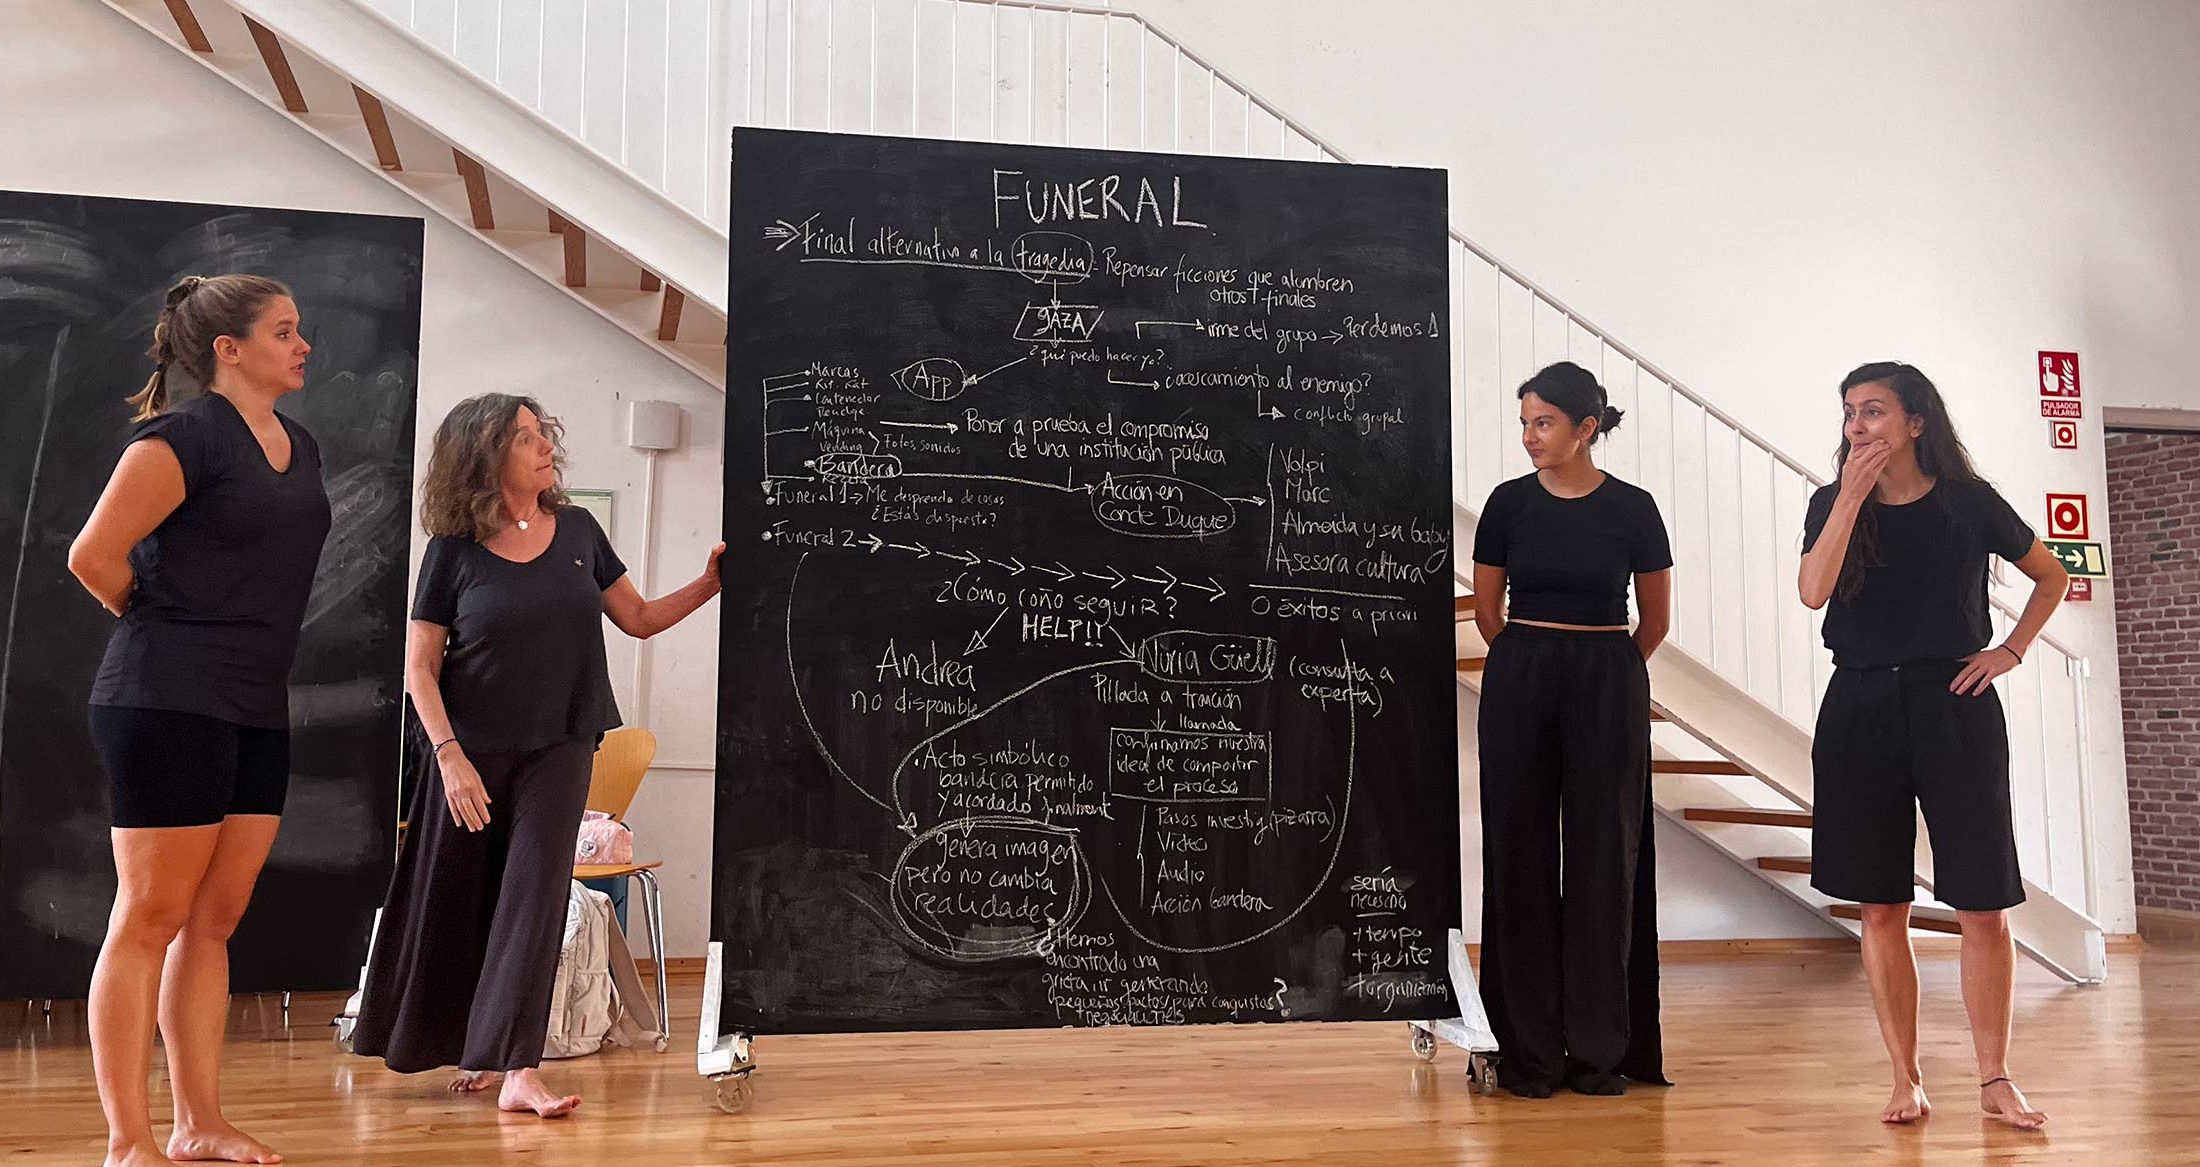 FUNERAL
Final alternativo a la tragedia: Repensar ficciones que alumbren
otros finales
GAZA
irme del grupo → Perdemos 1
¿qué puedo hacer yo?
¿acercamiento al enemigo?
conflicto grupal
App
Marcas
Kit-Kat
Contenedor
Reciclaje
Máquina
Vending
Fotos, sonidos
Bandera
Poner a prueba el compromiso
de una institución pública
Acción en
Conde Duque
Volpi
Marc
Almeida y su baby
Asesora cultura
0 éxitos a priori
Funeral 1 → Me desprendo de cosas
¿Estás dispuest@?
Funeral 2
¿Cómo coño seguir?
HELP!!
Andrea
no disponible
Nuria Güell
(consulta a
experta)
Pillada a traición
llamada
confirmamos nuestra
idea de compartir
el proceso
Pasos investig (pizarra)
Video
Audio
Acción bandera
Acto simbólico
bandera permitido
y acordado finalmente
genera imagen
pero no cambia
realidades
¿Hemos
encontrado una
grieta, ir generando
pequeños pactos para conquistas?
sería
necesario
+ tiempo
+ gente
+ organización
PULSADOR
DE ALARMA